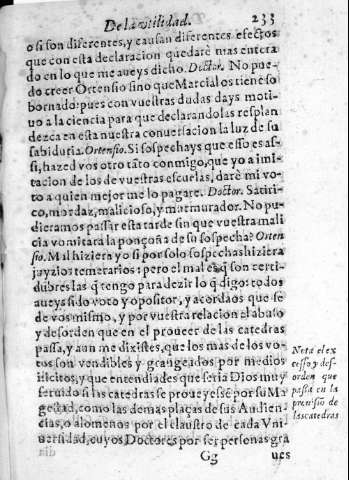 De la vtilidad. 233
o si son diferentes, y causan diferentes efectos
que con esta declaracion quedarè mas entera
do en lo que me aueys dicho. Doctor. No pue-
do creer Ortensio sino que Marcial os tiene so
bornado: pues con vuestras dudas days moti-
uo a la ciencia para que declarandolas resplan
dezca en esta nuestra conuersacion la luz de su
sabiduria. Ortensio. Si sospechays que esso es as-
si, hazed vos otro tãto conmigo, que yo a imi-
tacion de los de vuestras escuelas, darè mi vo-
to a quien mejor me lo pagare. Doctor. Satiri-
co, mordaz, malicioso, y murmurador. No pu-
dieramos passar esta tarde sin que vuestra mali
cia vomitara la ponçoña de su sospecha? Orten
sio. Mal hiziera yo si por solo sospechas hiziera
juyzios temerarios: pero el mal es q̃ son certi-
dubres las q̃ tengo para dezir lo q̃ digo: todos
aueys sido voto y opositor, y acordaos que se
de vos mismo, y por vuestra relacion el abuso
y desorden que en el proueer de las catedras
passa, y aun me dixistes, que los mas de los vo-
tos son vendibles y grangeados por medios
ilicitos, y que entendiades que seria Dios muy
seruido si las catedras se proueyesse por su Ma
gestad, como las demas plaças de sus Audien-
cias, o alomenos por el claustro de cada Vni-
uersidad, cuyos Doctores por ser personas gra
Gg ues
Nota el ex
cesso y des-
orden que
passa en la
prouisiõ de
las catedras